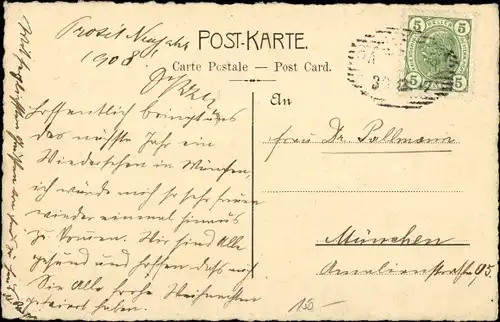 Prosit Neujahr
1908!
POST-KARTE.
Carte Postale — Post Card.
An
5 HELLER 5
5 5
30
Hoffentlich bringt uns
das nächste Jahr ein
Wiedersehen in München,
ich würde mich so sehr freuen
wieder einmal hinaus
zu kommen. Wir sind Alle
gesund und hoffen dass auch
Sie Alle frohe Weihnachten
gefeiert haben.
Frau Dr. Pallmann
München
Amalienstraße 95.
150 -